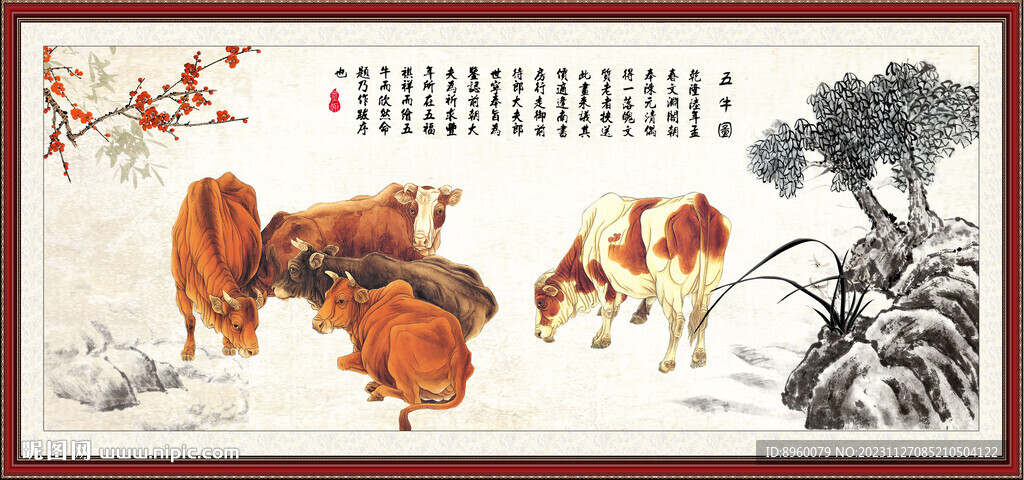 五牛圖
乾隆陸年孟
春文淵閣朝
奉陳元清偶
得一落魄文
質老者挾送
此畫来議其
價適逢南書
房行走御前
待郎大夫郎
世寧奉旨為
鑒認前朝大
夫為祈求豐
年所在五福
祺祥而繪五
牛而欣然命
題乃作跋序
也
昵图网 www.nipic.com
ID:8960079 NO:20231127085210504122